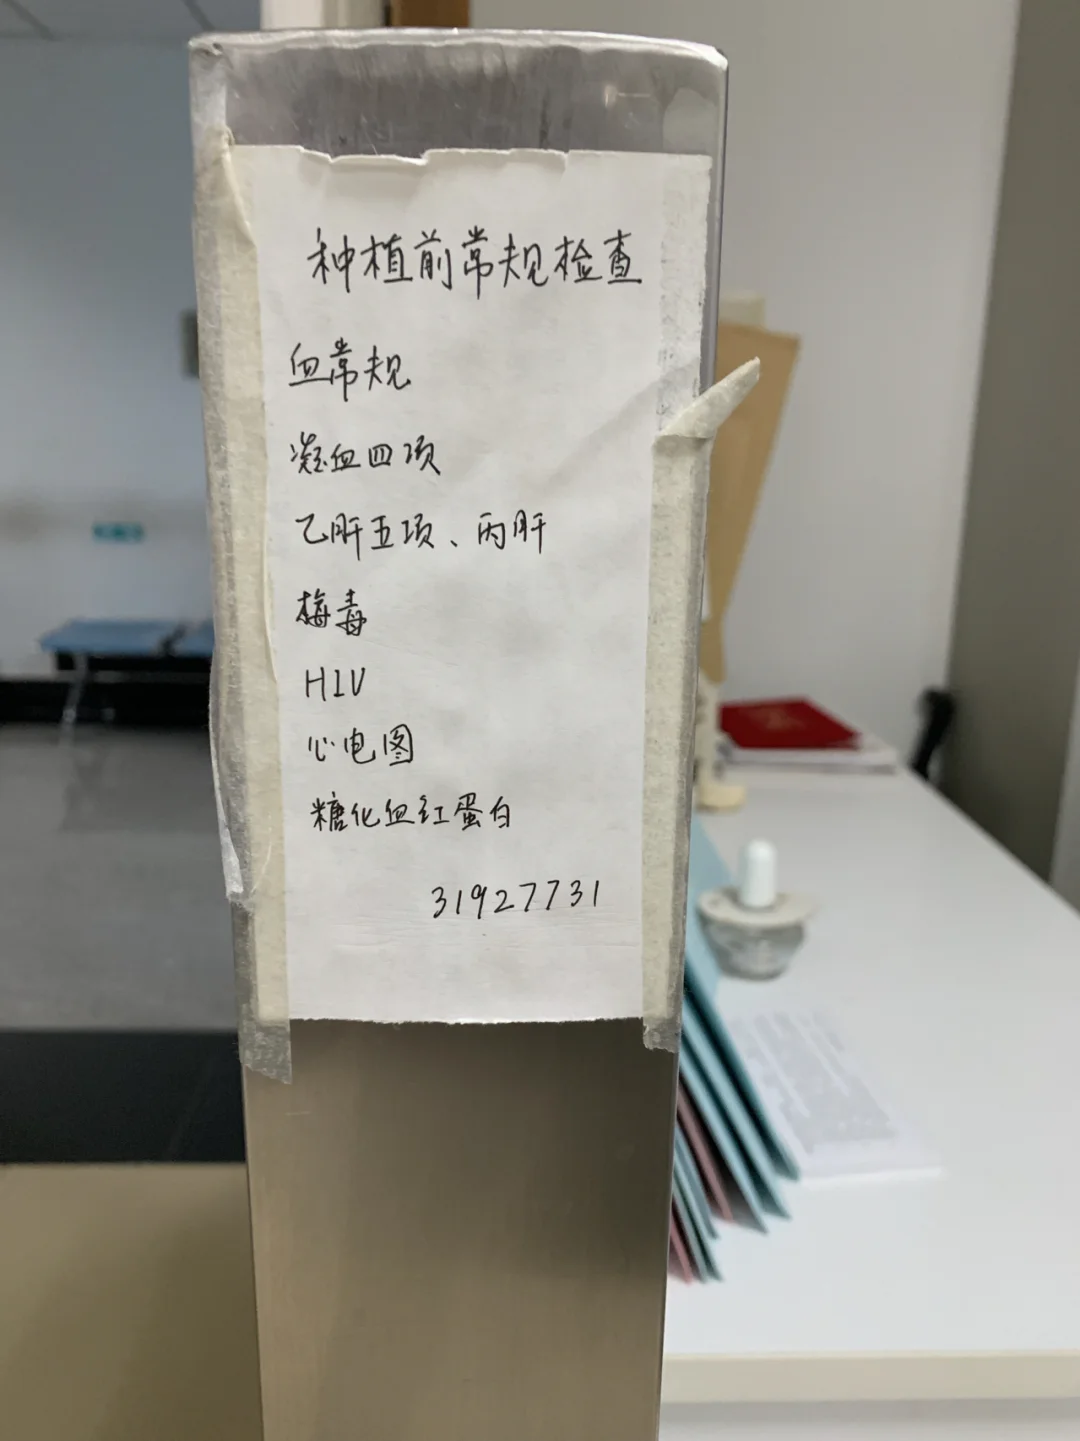 种植前常规检查
血常规
凝血四项
乙肝五项、丙肝
梅毒
HIV
心电图
糖化血红蛋白
31927731